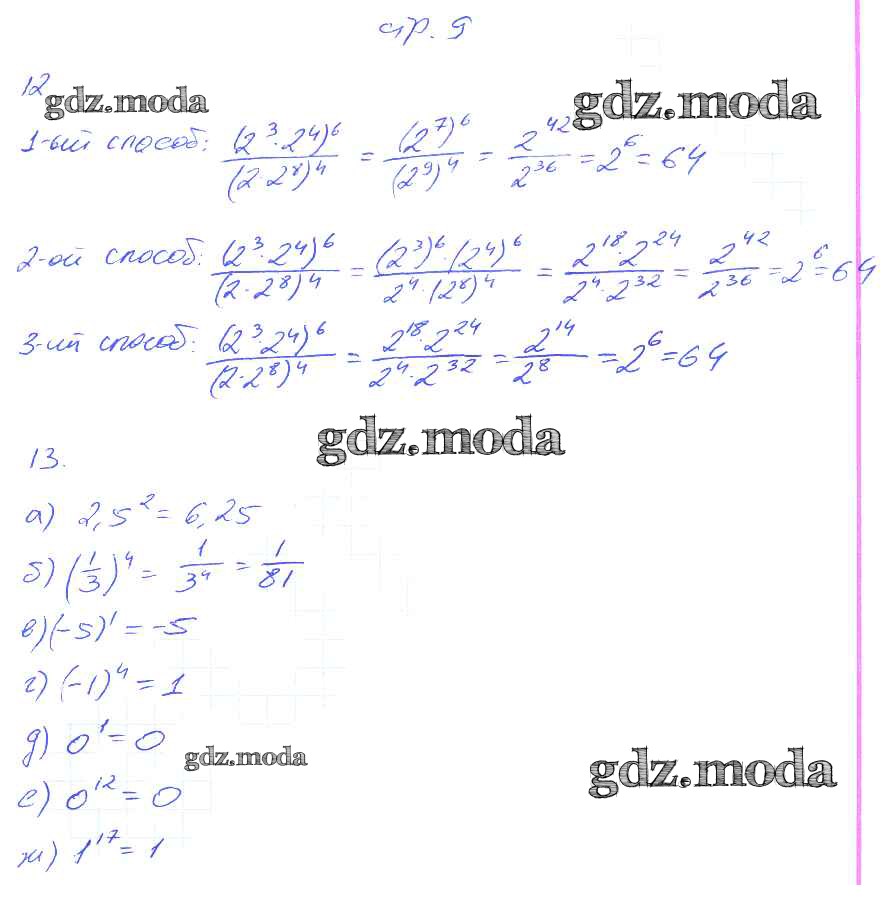 стр. 9
12
gdz.moda
gdz.moda
1-ый способ: (2^3·2^4)^6/(2·2^8)^4 = (2^7)^6/(2^9)^4 = 2^42/2^36 = 2^6 = 64
2-ой способ: (2^3·2^4)^6/(2·2^8)^4 = (2^3)^6·(2^4)^6/2^4·(2^8)^4 = 2^18·2^24/2^4·2^32 = 2^42/2^36 = 2^6 = 64
3-ий способ: (2^3·2^4)^6/(2·2^8)^4 = 2^18·2^24/2^4·2^32 = 2^14/2^8 = 2^6 = 64
gdz.moda
13.
а) 2,5^2 = 6,25
б) (1/3)^4 = 1/3^4 = 1/81
в) (-5)^1 = -5
г) (-1)^4 = 1
д) 0^1 = 0
gdz.moda
gdz.moda
е) 0^12 = 0
ж) 1^17 = 1